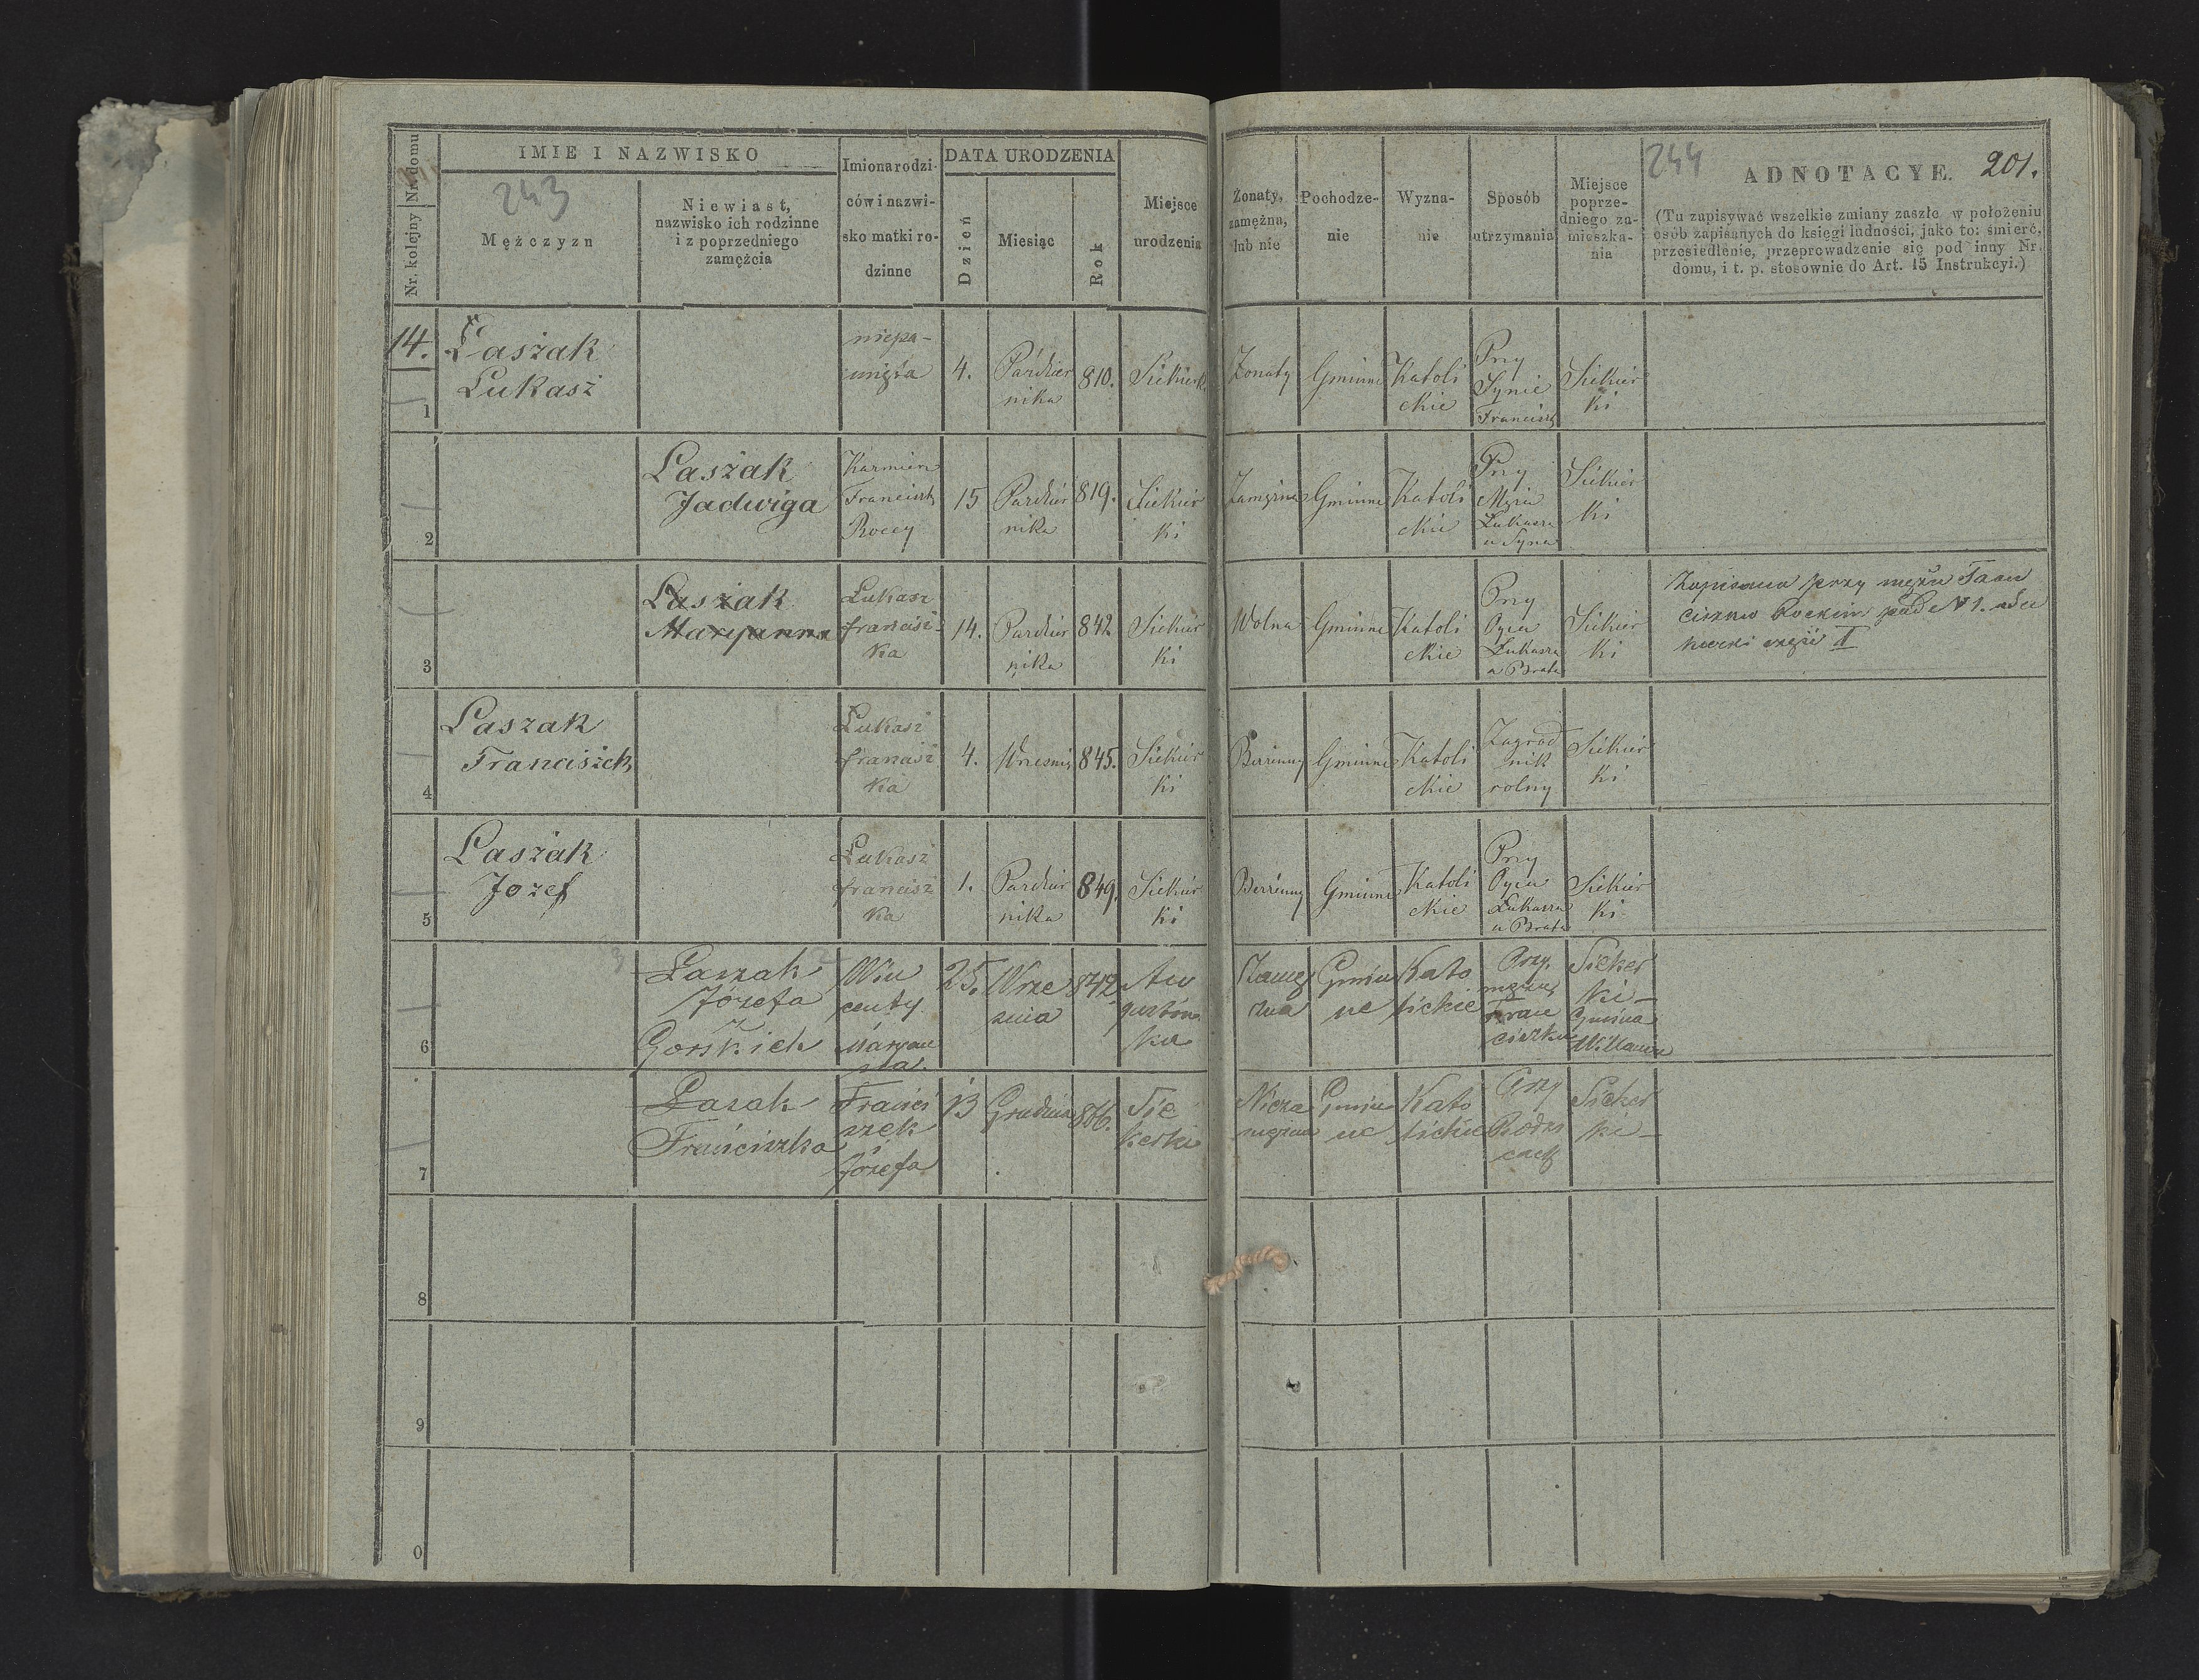 Nr. kolejny | Nr. domu
IMIE I NAZWISKO
243
Mężczyzn
Niewiast,
nazwisko ich rodzinne
i z poprzedniego
zamężcia
Imiona rodzi-
ców i nazwi-
sko matki ro-
dzinne
DATA URODZENIA
Dzień
Miesiąc
Rok
Miejsce
urodzenia
Żonaty,
zamężna,
lub nie
Pochodze-
nie
Wyzna-
nie
Sposób
utrzymania
Miejsce
poprze-
dniego za-
mieszka-
nia
244
ADNOTACYE. 201.
(Tu zapisywać wszelkie zmiany zaszłe w położeniu
osób zapisanych do księgi ludności, jako to: śmierć,
przesiedlenie, przeprowadzenie się pod inny Nr.
domu, i t. p. stosownie do Art. 15 Instrukcyi.)
14.
1
Łaszak
Łukasz
niepa-
mięta
4.
Paździer
nika
810.
Siekierk
Żonaty
Gminne
Katoli
ckie
Przy
Synie
Franciszk
Siekier
ki
2
Laszak
Jadwiga
Franciszk
15
Paździer
nika
819.
Siekier
ki
Zamężna
Gminne
Katoli
ckie
Przy
Mężu
Łukaszu
a Syna
Siekier
ki
3
Laszak
Maryanna
Łukasz
francisz
ka
14.
Paździer
nika
842
Siekier
ki
Wolna
Gminne
Katoli
ckie
Przy
Oycu
Łukaszu
a Brata
Siekier
ki
Zapisana przy mężu Fran
ciszku Rockim pod N 1.
część II
4
Laszak
Franciszek
Łukasz
francisz
ka
4.
Wresnia
845.
Siekier
ki
Bezżenny
Gminne
Katoli
ckie
Zagrod
nik
rolny
Siekier
ki
5
Laszak
Jozef
Łukasz
francisz
ka
1.
Paździer
nika
849.
Siekier
ki
Bezżenny
Gminne
Katoli
ckie
Przy
Oycu
Łukaszu
a Brata
Siekier
ki
6
Laszak
Józefa
z
Gorskich
Win
centy
Maryan
na
25.
Wrze
snia
842
Au
gustow
ka
Zamęz
zna
Gmin
ne
Kato
lickie
Przy
mężu
Fran
ciszku
Sieker
ki
Gmina
Willanów
7
Lasak
Franciszka
Franci
szek
Józefa
13
Grudnia
866.
Sie
kerki
Nieza
mężna
Gmin
ne
Kato
lickie
Przy
Rodzi
cach
Sieker
ki
8
9
0